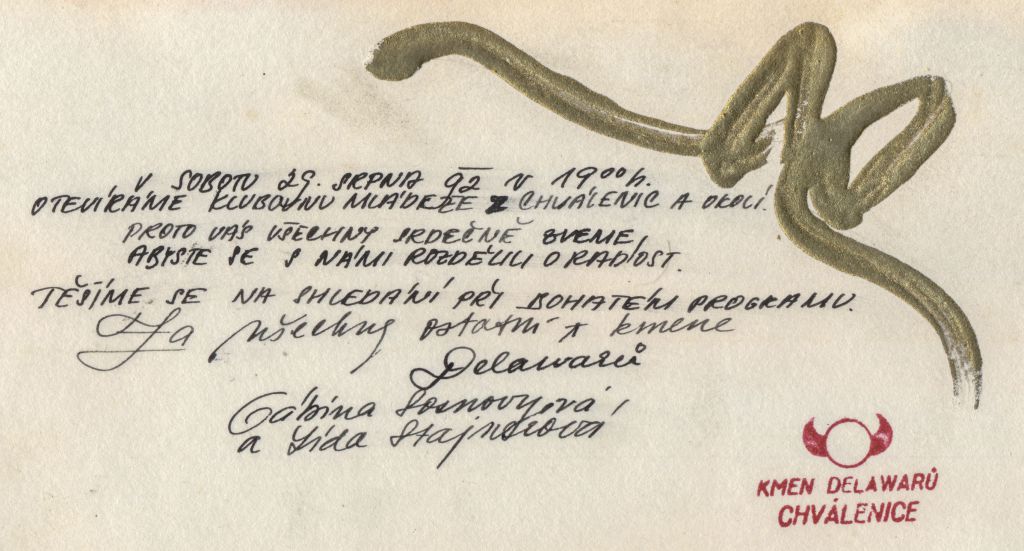 V SOBOTU 29. SRPNA 92 V 19ººh.
OTEVÍRÁME KLUBOVNU MLÁDEŽE Z CHVÁLENIC A OKOLÍ.
PROTO VÁS VŠECHNY SRDEČNĚ ZVEME,
ABYSTE SE S NÁMI ROZDĚLILI O RADOST.
TĚŠÍME SE NA SHLEDÁNÍ PŘI BOHATÉM PROGRAMU.
Za všechny ostatní z kmene
Delawarů
Gábina Sosnovyjová
a Lída
KMEN DELAWARŮ
CHVÁLENICE